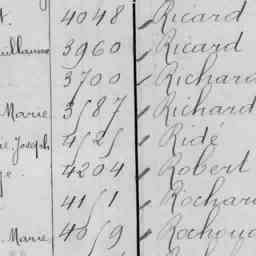 t. 4048 Ricard
uillaume 3960 Ricard
3700 Richard
Marie 3587 Richard
ie Joseph 4525 Ridé
ge. 4204 Robert
4151 Rochar
Marie 4059 Rochou